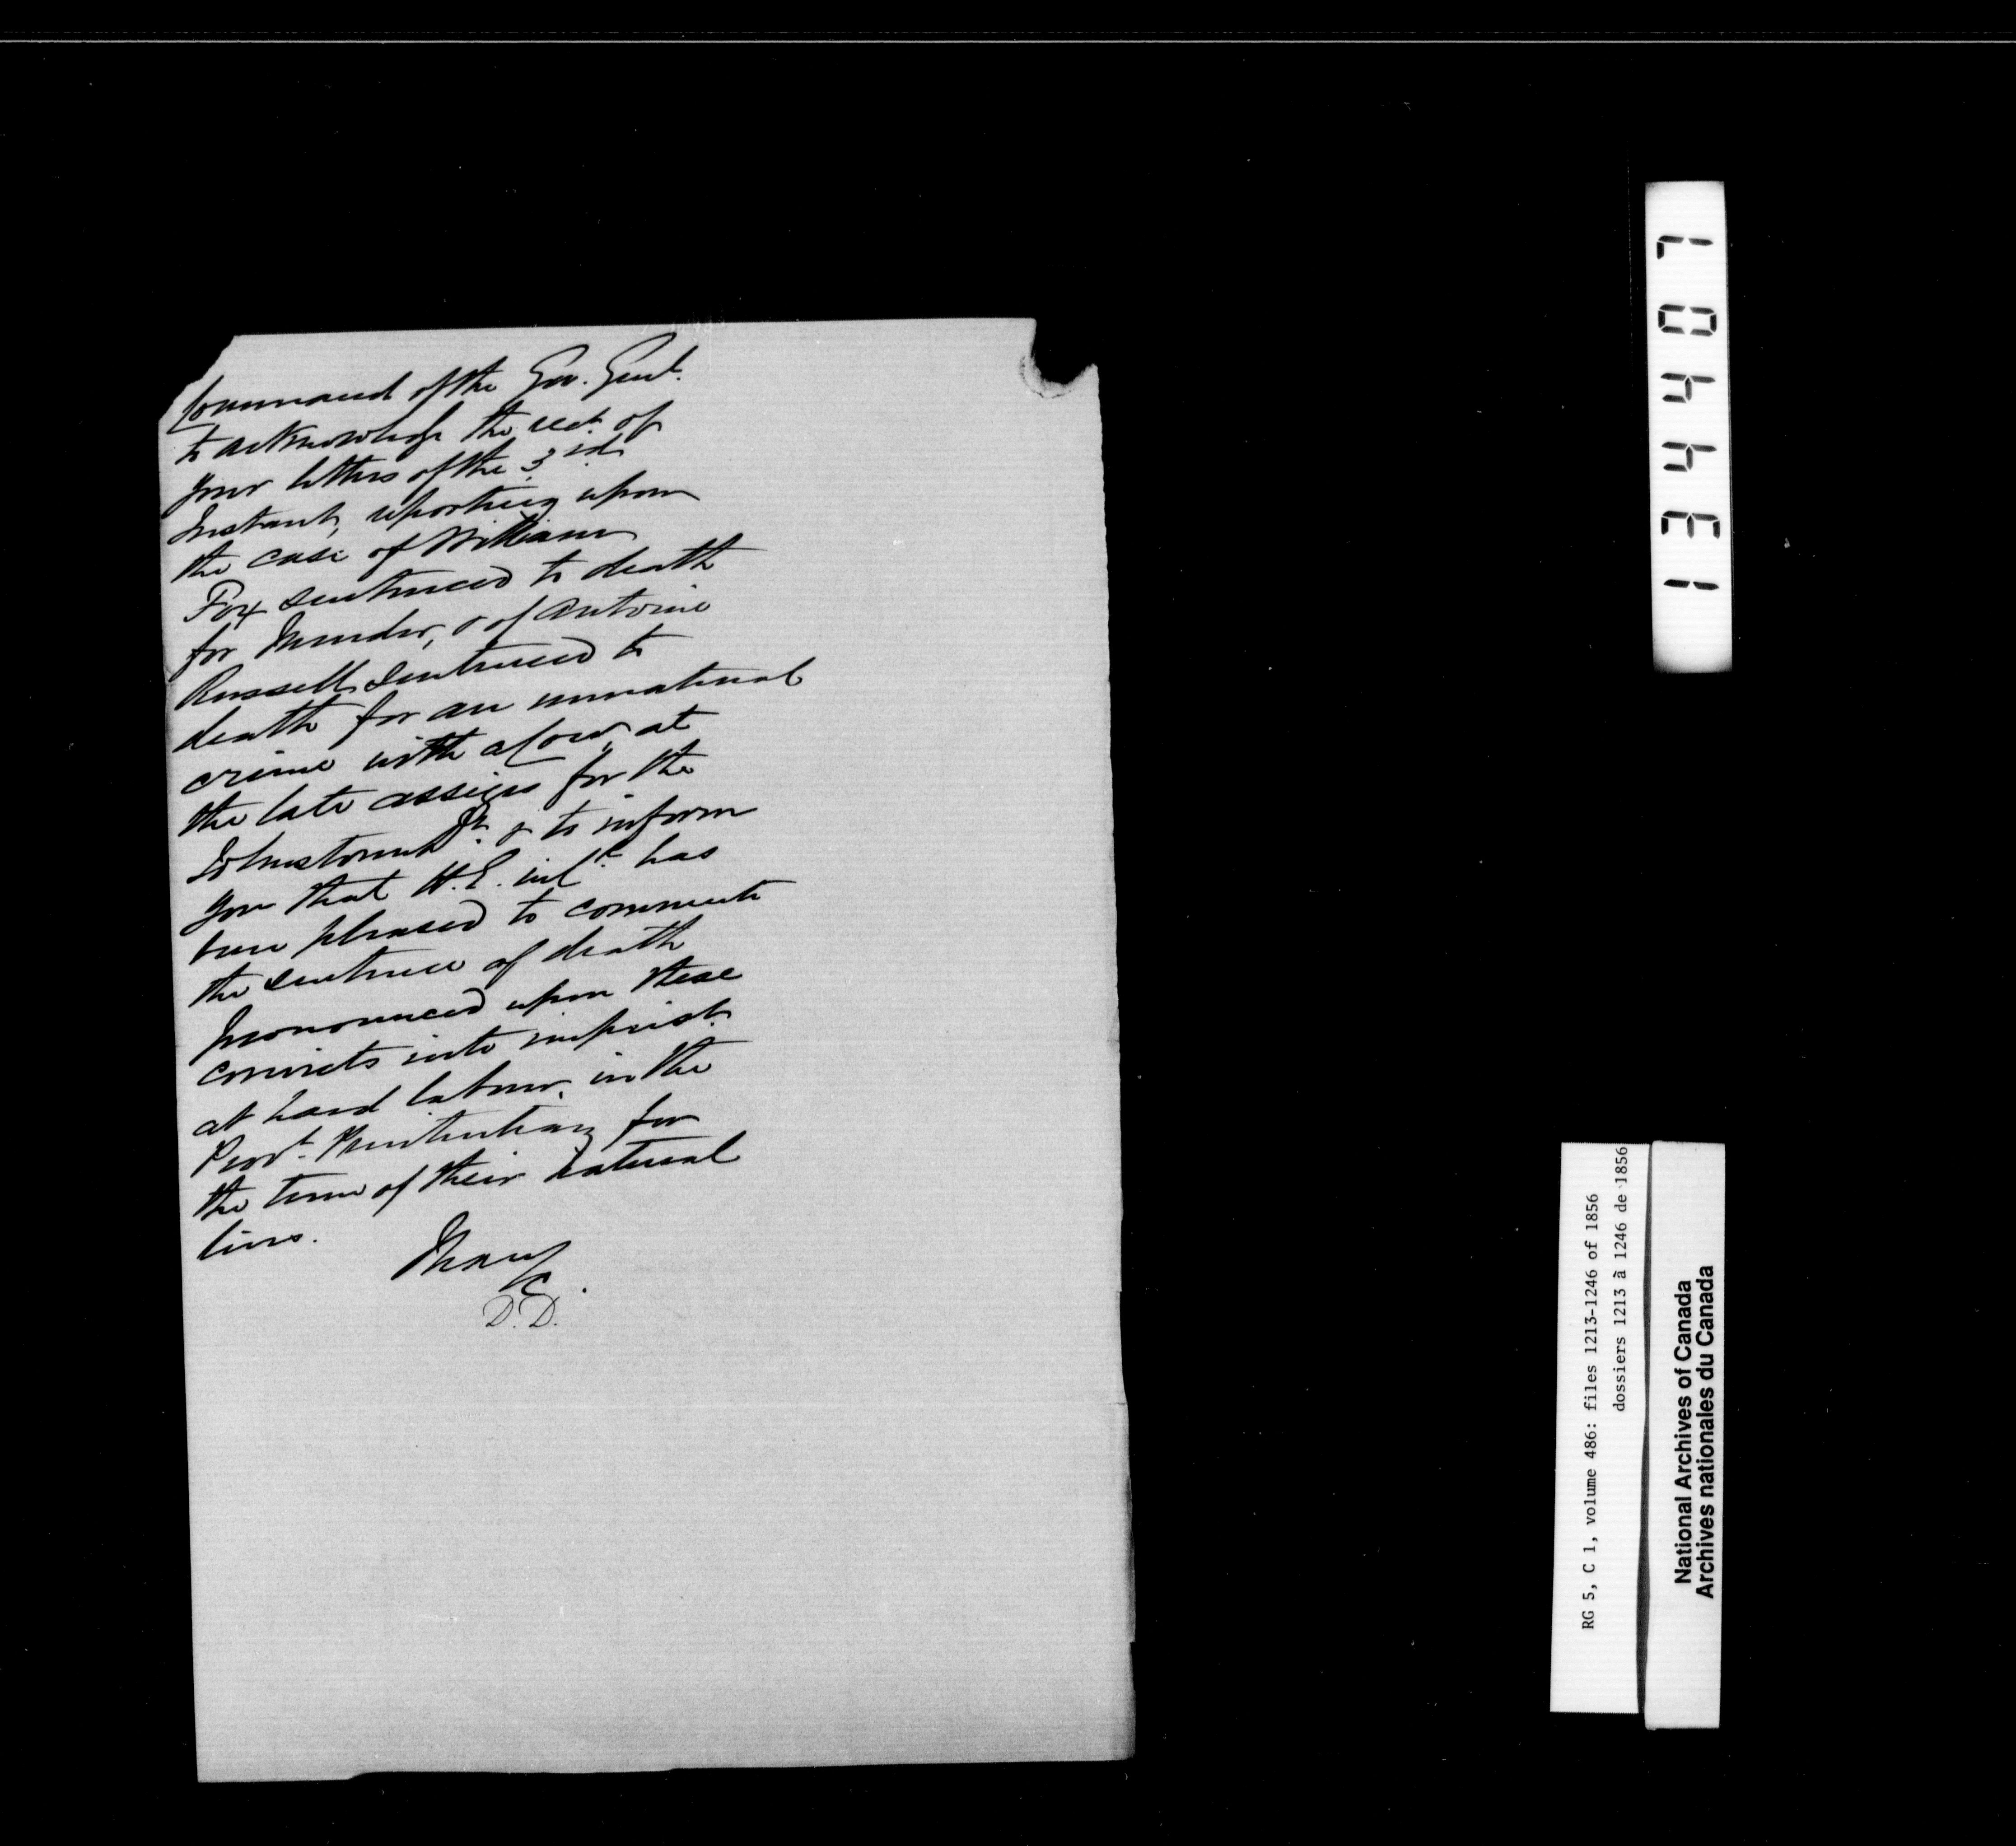 Command of the Gov. Genl.
to acknowledge the rect. of
your letters of the 3rd
Instant, reporting upon
the case of William
Fox sentenced to death
for Murder, & of Antoine
Russell sentenced to
death for an unnatural
crime with a cow, at
the late assizes for the
Johnstown Dt. & to inform
you that H.E. in C. has
been pleased to commute
the sentence of death
pronounced upon these
convicts into imprist.
at hard labour, in the
Provl. Penitentiary for
the term of their natural
lives.
I have
&c.
D.D.
134407
RG 5, C 1, volume 486: files 1213-1246 of 1856
dossiers 1213 à 1246 de 1856
National Archives of Canada
Archives nationales du Canada